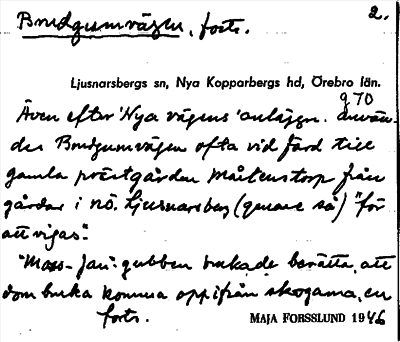 Brudgumvägen, forts. 2.
Ljusnarsbergs sn, Nya Kopparbergs hd, Örebro län.
g 70
Även efter 'Nya vägens' anläggn. använ-
des Brudgumvägen ofta vid färd till
gamla prästgården Mårtenstorp från
gårdar i nö. Ljusnarsberg (genare så) "för
att vigas".
"Mass-Jan"-gubben brukade berätta, att
dom bruka komma oppifrån skogarna, en
forts.
MAJA FORSSLUND 1946